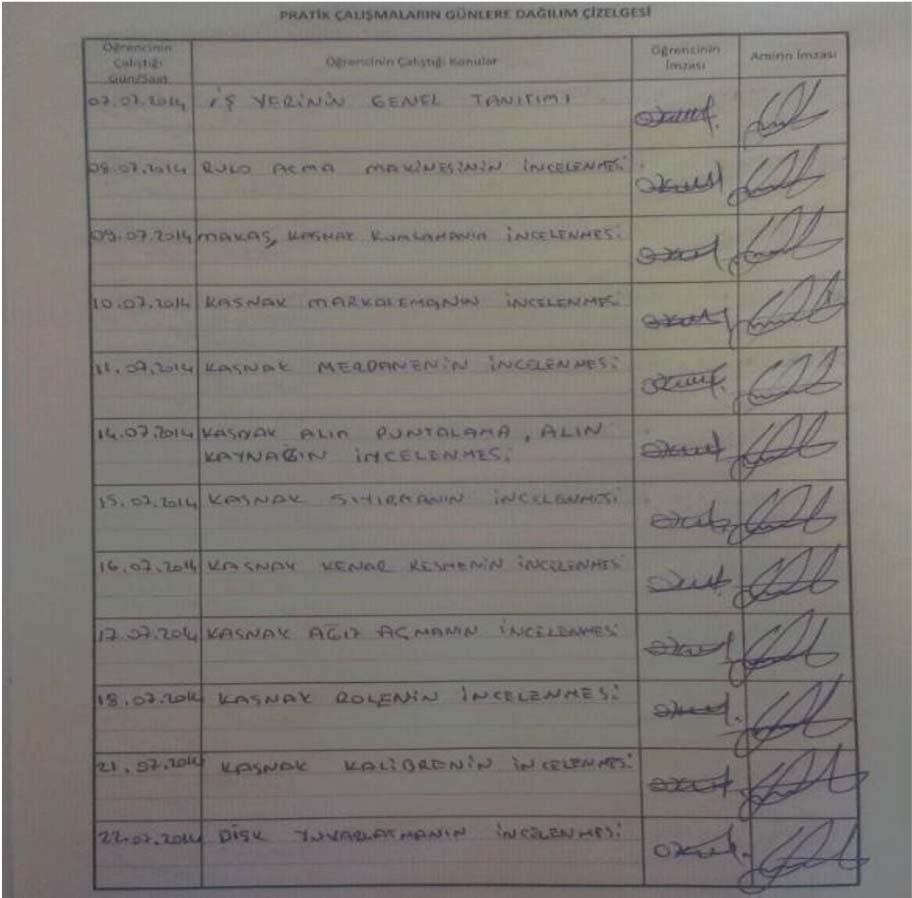 PRATİK ÇALIŞMALARIN GÜNLERE DAĞILIM ÇİZELGESİ
Öğrencinin Çalıştığı Gün/Saat
Öğrencinin Çalıştığı Konular
Öğrencinin İmzası
Amirin İmzası
07.07.2014 İŞ YERİNİN GENEL TANITIMI
08.07.2014 RULO AÇMA MAKİNESİNİN İNCELENMESİ
09.07.2014 MAKAS, KASNAK İNCELENMESİ
10.07.2014 KASNAK MARKALEMANIN İNCELENMESİ
11.07.2014 KASNAK MERDANENİN İNCELENMESİ
14.07.2014 KASNAK ALIN PUNTALAMA, ALIN
KAYNAĞIN İNCELENMESİ
15.07.2014 KASNAK SIYIRMANIN İNCELENMESİ
16.07.2014 KASNAK KENAR KESMENİN İNCELENMESİ
17.07.2014 KASNAK AĞIZ AÇMANIN İNCELENMESİ
18.07.2014 KASNAK ROLENİN İNCELENMESİ
21.07.2014 KASNAK KALİBRENİN İNCELENMESİ
22.07.2014 DİSK YUVARLATMANIN İNCELENMESİ